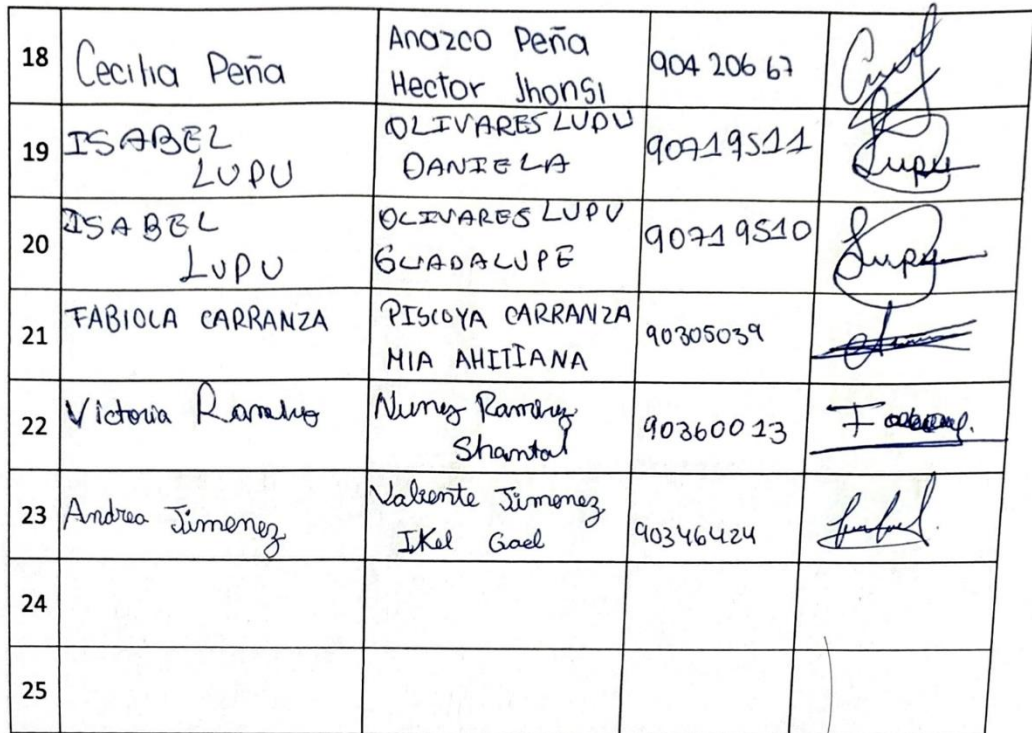 18 Cecilia Peña Anazco Peña Hector Jhonsi 904 206 67
19 ISABEL LUPU OLIVARES LUPU DANIELA 90719511 Lupu
20 ISABEL LUPU OLIVARES LUPU GUADALUPE 90719510 Lupu
21 FABIOLA CARRANZA PISCOYA CARRANZA MIA AHITIANA 90305039
22 Victoria Nunez Ramirez Shantal 90360013
23 Andrea Jimenez Valiente Jimenez IKel Gael 90346424
24
25